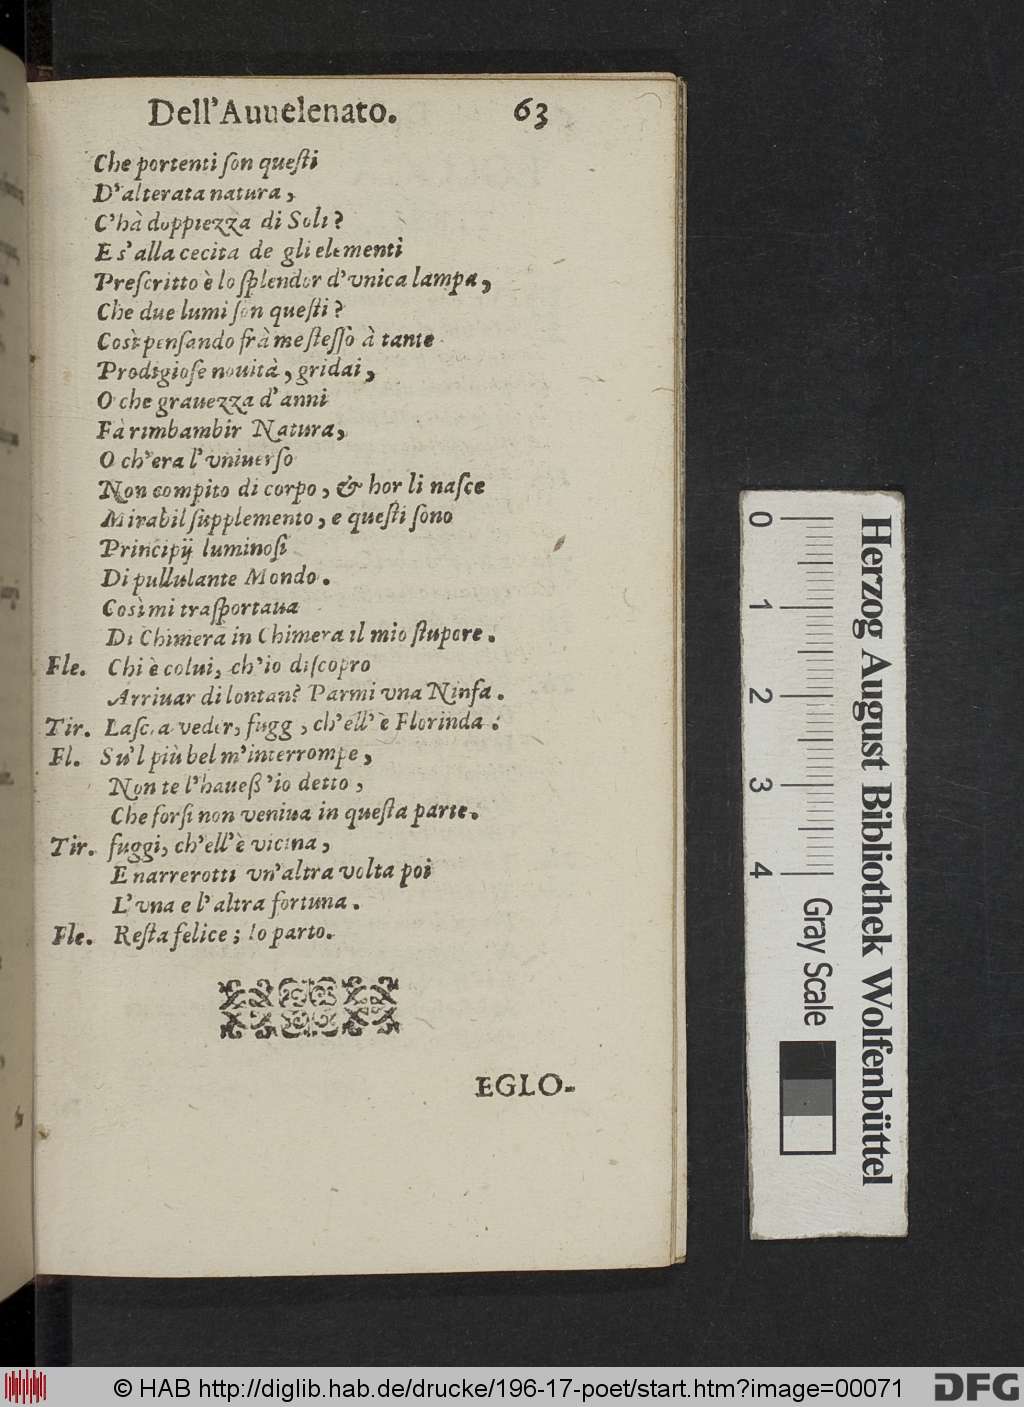 Dell'Auuelenato. 63
Che portenti ſon queſti
D'alterata natura,
C'hà doppiezza di Soli?
E s'alla cecita de gli elementi
Preſcritto è lo ſplendor d'vnica lampa,
Che due lumi ſon queſti?
Così penſando frà me ſteſſo à tante
Prodigioſe nouità, gridai,
O che grauezza d'anni
Fà rimbambir Natura,
O ch'era l'vniuerſo
Non compito di corpo, & hor li naſce
Mirabil ſupplemento, e queſti ſono
Principij luminoſi
Di pullulante Mondo.
Così mi traſportaua
Di Chimera in Chimera il mio ſtupore.
Fle. Chi è colui, ch'io diſcopro
Arriuar di lontan? Parmi vna Ninfa.
Tir. Laſc a veder, fugg , ch'ell'è Florinda:
Fl. Su'l più bel m'interrompe,
Non te l'haueß'io detto,
Che forſi non veniua in queſta parte.
Tir. fuggi, ch'ell'è vicina,
E narrerotti vn'altra volta poi
L'vna e l'altra fortuna.
Fle. Reſta felice; Io parto.
EGLO-
0 1 2 3 4
Gray Scale
Herzog August Bibliothek Wolfenbüttel
© HAB http://diglib.hab.de/drucke/196-17-poet/start.htm?image=00071
DFG